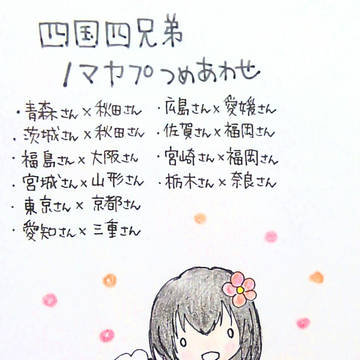 四国四兄弟
ノマヤプつめあわせ
・青森さん×秋田さん
・茨城さん×秋田さん
・福島さん×大阪さん
・宮城さん×山形さん
・東京さん×京都さん
・愛知さん×三重さん
・広島さん×愛媛さん
・佐賀さん×福岡さん
・宮崎さん×福岡さん
・栃木さん×奈良さん